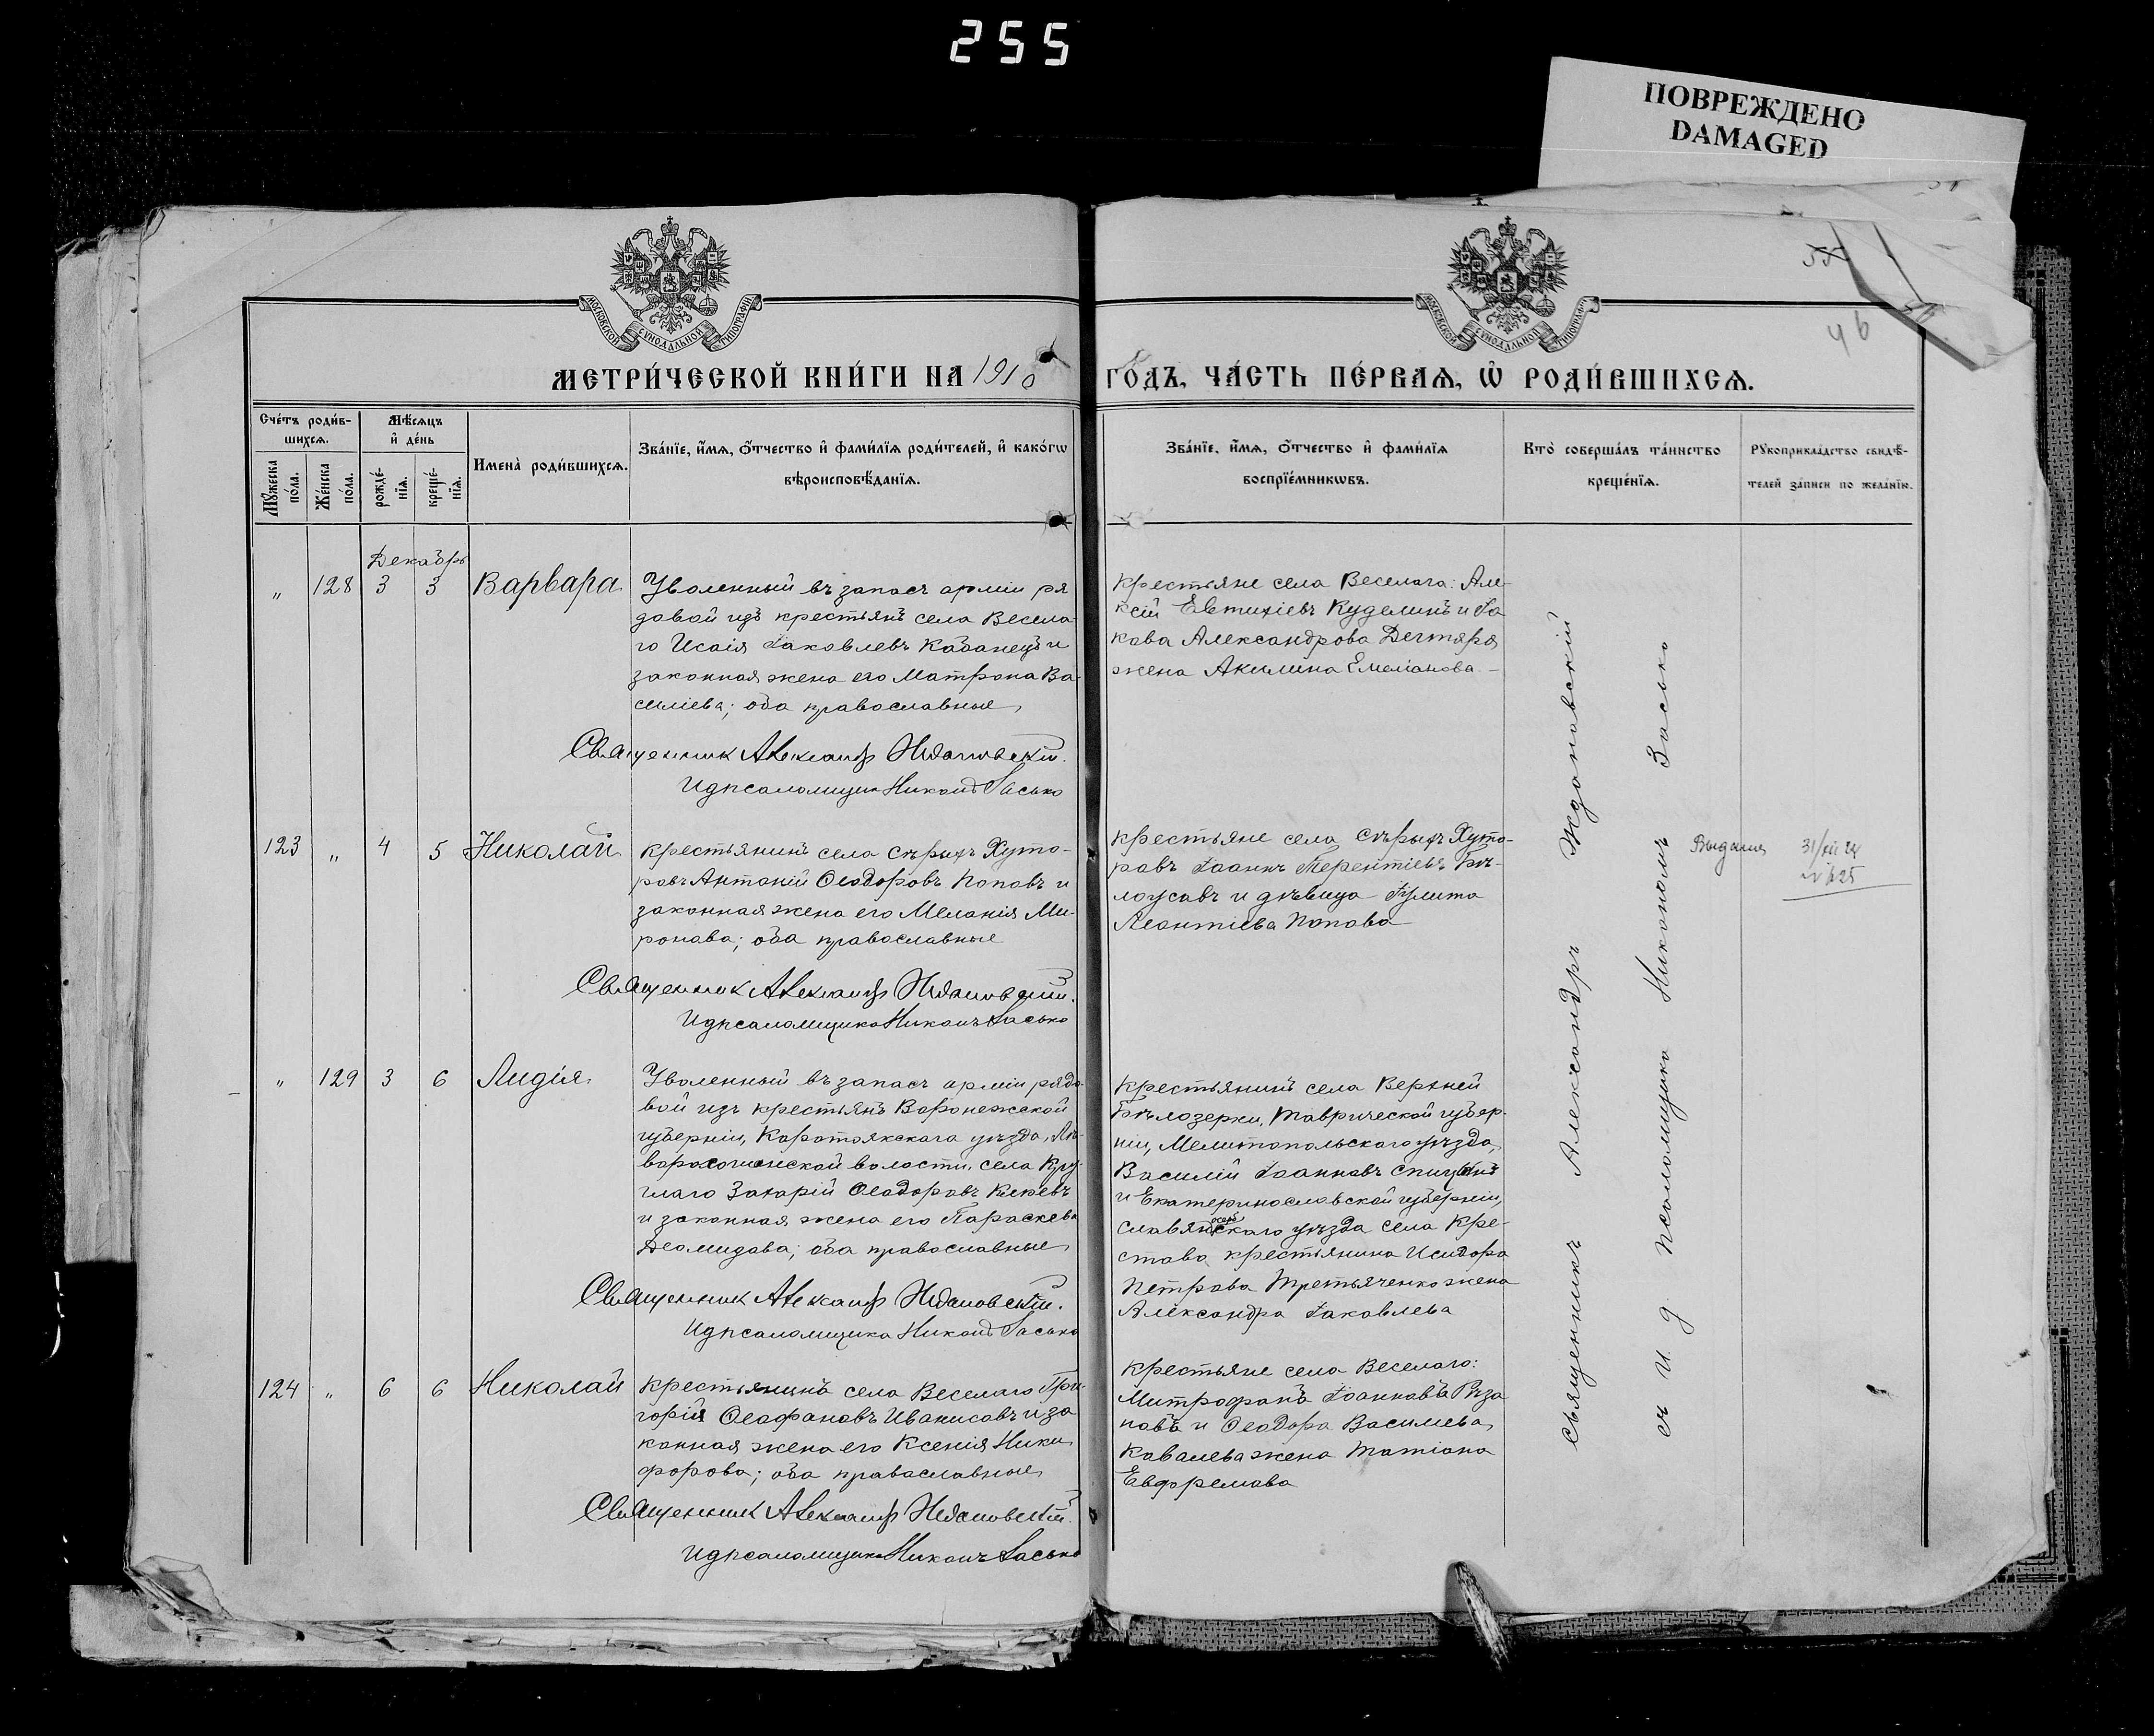 255
ПОВРЕЖДЕНО
DAMAGED
МОСКОВСКОЙ СѴНОДАЛЬНОЙ ТИПОГРАФІИ
МОСКОВСКОЙ СѴНОДАЛЬНОЙ ТИПОГРАФІИ
55
46
МЕТРИ́ЧЕСКОЙ КНИ́ГИ НА 1910
ГО́ДЪ, ЧА́СТЬ ПЕ́РВАѦ, Ѡ҆ РОДИ́ВШИХСѦ.
Сче́тъ роди́в-
шихсѧ.
Мꙋ́жеска
по́ла.
Же́нска
по́ла.
Мѣ́сѧцъ
и҆ де́нь
рожде́-
нїѧ.
креще́-
нїѧ.
Имена̀ роди́вшихсѧ.
Зва́нїе, и҆́мѧ, ѻ҆́тчество и҆ фами́лїѧ роди́телей, и҆ како́гѡ
вѣроисповѣ́данїѧ.
Зва́нїе, и҆́мѧ, ѻ҆́тчество и҆ фами́лїѧ
воспрїе́мникѡвъ.
Кто̀ соверша́лъ та́инство
креще́нїѧ.
Рꙋкоприкла́дство свидѣ́-
телей за́писи по жела́нїю.
Декабрь
„ 128 3 3 Варвара
Уволенный въ запасъ арміи ря
довой изъ крестьянъ села Весела
го Исаія Іаковлевъ Кабанецъ и
законная жена его Матрона Ва-
силіева; оба православные
Священник Александр Ждановскій.
И д псаломщика Никонъ Засько
Крестьяне села Веселаго: Але-
ксій Евтихіевъ Куделинъ и Іа
кова Александрова Дегтяря
жена Акилина Емеліанова
123 „ 4 5 Николай
Крестьянинъ села Сѣрыхъ Хуто-
ровъ Антоній Ѳеодоровъ Поповъ и
законная жена его Меланія Ми-
ронова; оба православные
Священник Александр Ждановскій.
И д псаломщика Никонъ Засько
Крестьяне села Сѣрыхъ Хуто-
ровъ Іоаннъ Терентіевъ Бѣ-
лоусовъ и дѣвица Іулита
Леонтіева Попова
Выдана
31/XII 24
№ 625
„ 129 3 6 Лидія
Уволенный въ запасъ арміи рядо
вой изъ крестьянъ Воронежской
губерніи, Коротоякскаго уѣзда,
волости, села Кру-
глаго Захарій Ѳеодоровъ
и законная жена его Параскева
Деомидова; оба православные
Священник Александр Ждановскій.
И д псаломщика Никонъ Засько
Крестьянинъ села Верхней
Бѣлозерки, Таврической губер-
ніи, Мелитопольскаго уѣзда,
Василій Іоанновъ Спицынъ
и Екатеринославской губерніи,
Славяносербскаго уѣзда села Кре-
стово крестьянина Исидора
Петрова Третьяченко жена
Александра Іаковлева
124 „ 6 6 Николай
Крестьянинъ села Веселаго Гри-
горій Ѳеофановъ Иванисовъ и за
конная жена его Ксенія Ники
форова; оба православные
Священник Александр Ждановскій.
И д псаломщика Никонъ Засько
Крестьяне села Веселаго:
Митрофанъ Іоанновъ Рѣза
новъ и Ѳеодора Василіева
Ковалева жена Татіана
Евфремова
Священникъ Александръ Ждановскій
съ И. д. псаломщика Никономъ Засько